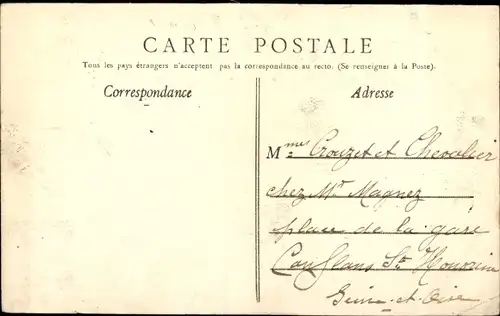 CARTE POSTALE
Tous les pays étrangers n'acceptent pas la correspondance au recto. (Se renseigner à la Poste).
Correspondance
Adresse
Mmes Crouzet et Chevalier
chez Mr Magnez
place de la gare
Conflans Ste Honorine
Seine-et-Oise